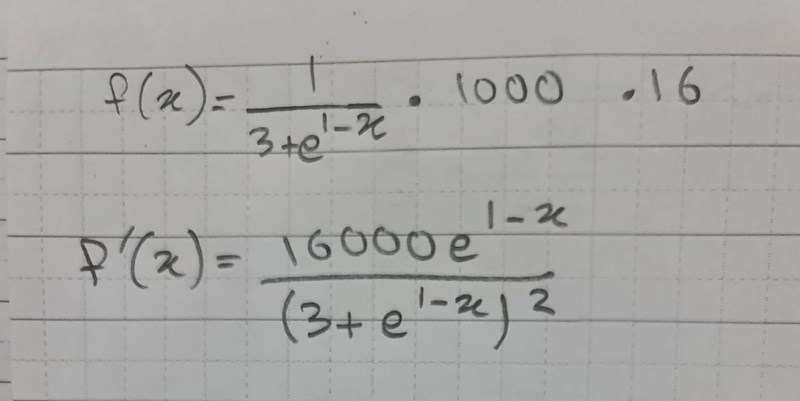 f(x) = 1/(3+e^(1-x)) · 1000 · 16
f'(x) = 16000e^(1-x)/(3+e^(1-x))^2